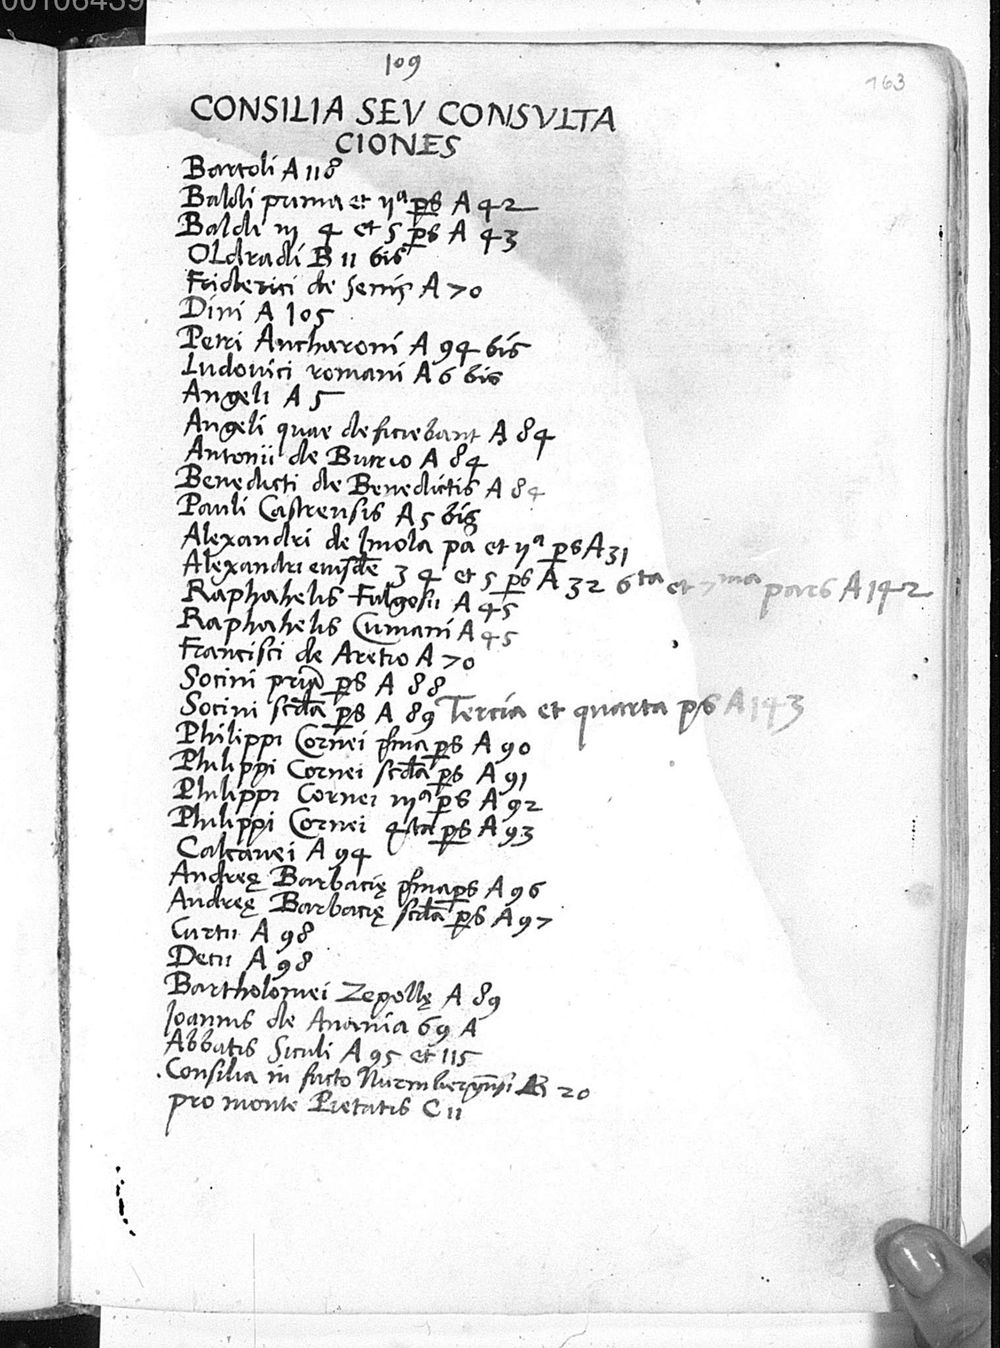 00106439
109
163
CONSILIA SEV CONSVLTA
CIONES
Bartoli A 118
Baldi prima et ijª ps A 42
Baldi iij 4 et 5 ps A 43
Oldradi B 11 bis
Friderici de Senis A 70
Dini A 105
Petri Ancharoni A 94 bis
Ludovici romani A 6 bis
Angeli A 5
Angeli quae deficiebant A 84
Antonii de Butrio A 84
Benedicti de Benedictis A 84
Pauli Castrensis A 5 bis
Alexandri de Imola pa et ijª ps A 31
Alexandri eiusdē 3 4 et 5 ps A 32 6ta et 7ma pars A 142
Raphahelis Fulgosii A 45
Raphahelis Cumani A 45
Francisci de Aretio A 70
Socini ps A 88
Socini scdā ps A 89 Tercia et quarta ps A 143
Philippi Cornei pma ps A 90
Philippi Cornei scdā ps A 91
Philippi Cornei iijª ps A 92
Philippi Cornei 4ta ps A 93
Calcanei A 94
Andreę Barbacię pma ps A 96
Andreę Barbacię scdā ps A 97
Curtii A 98
Decii A 98
Bartholomei Zepollę A 89
Joannis de Anania 69 A
Abbatis Siculi A 95 et 115
Consilia in facto Nurmbergēnsi B 20
pro monte Pietatis C 11